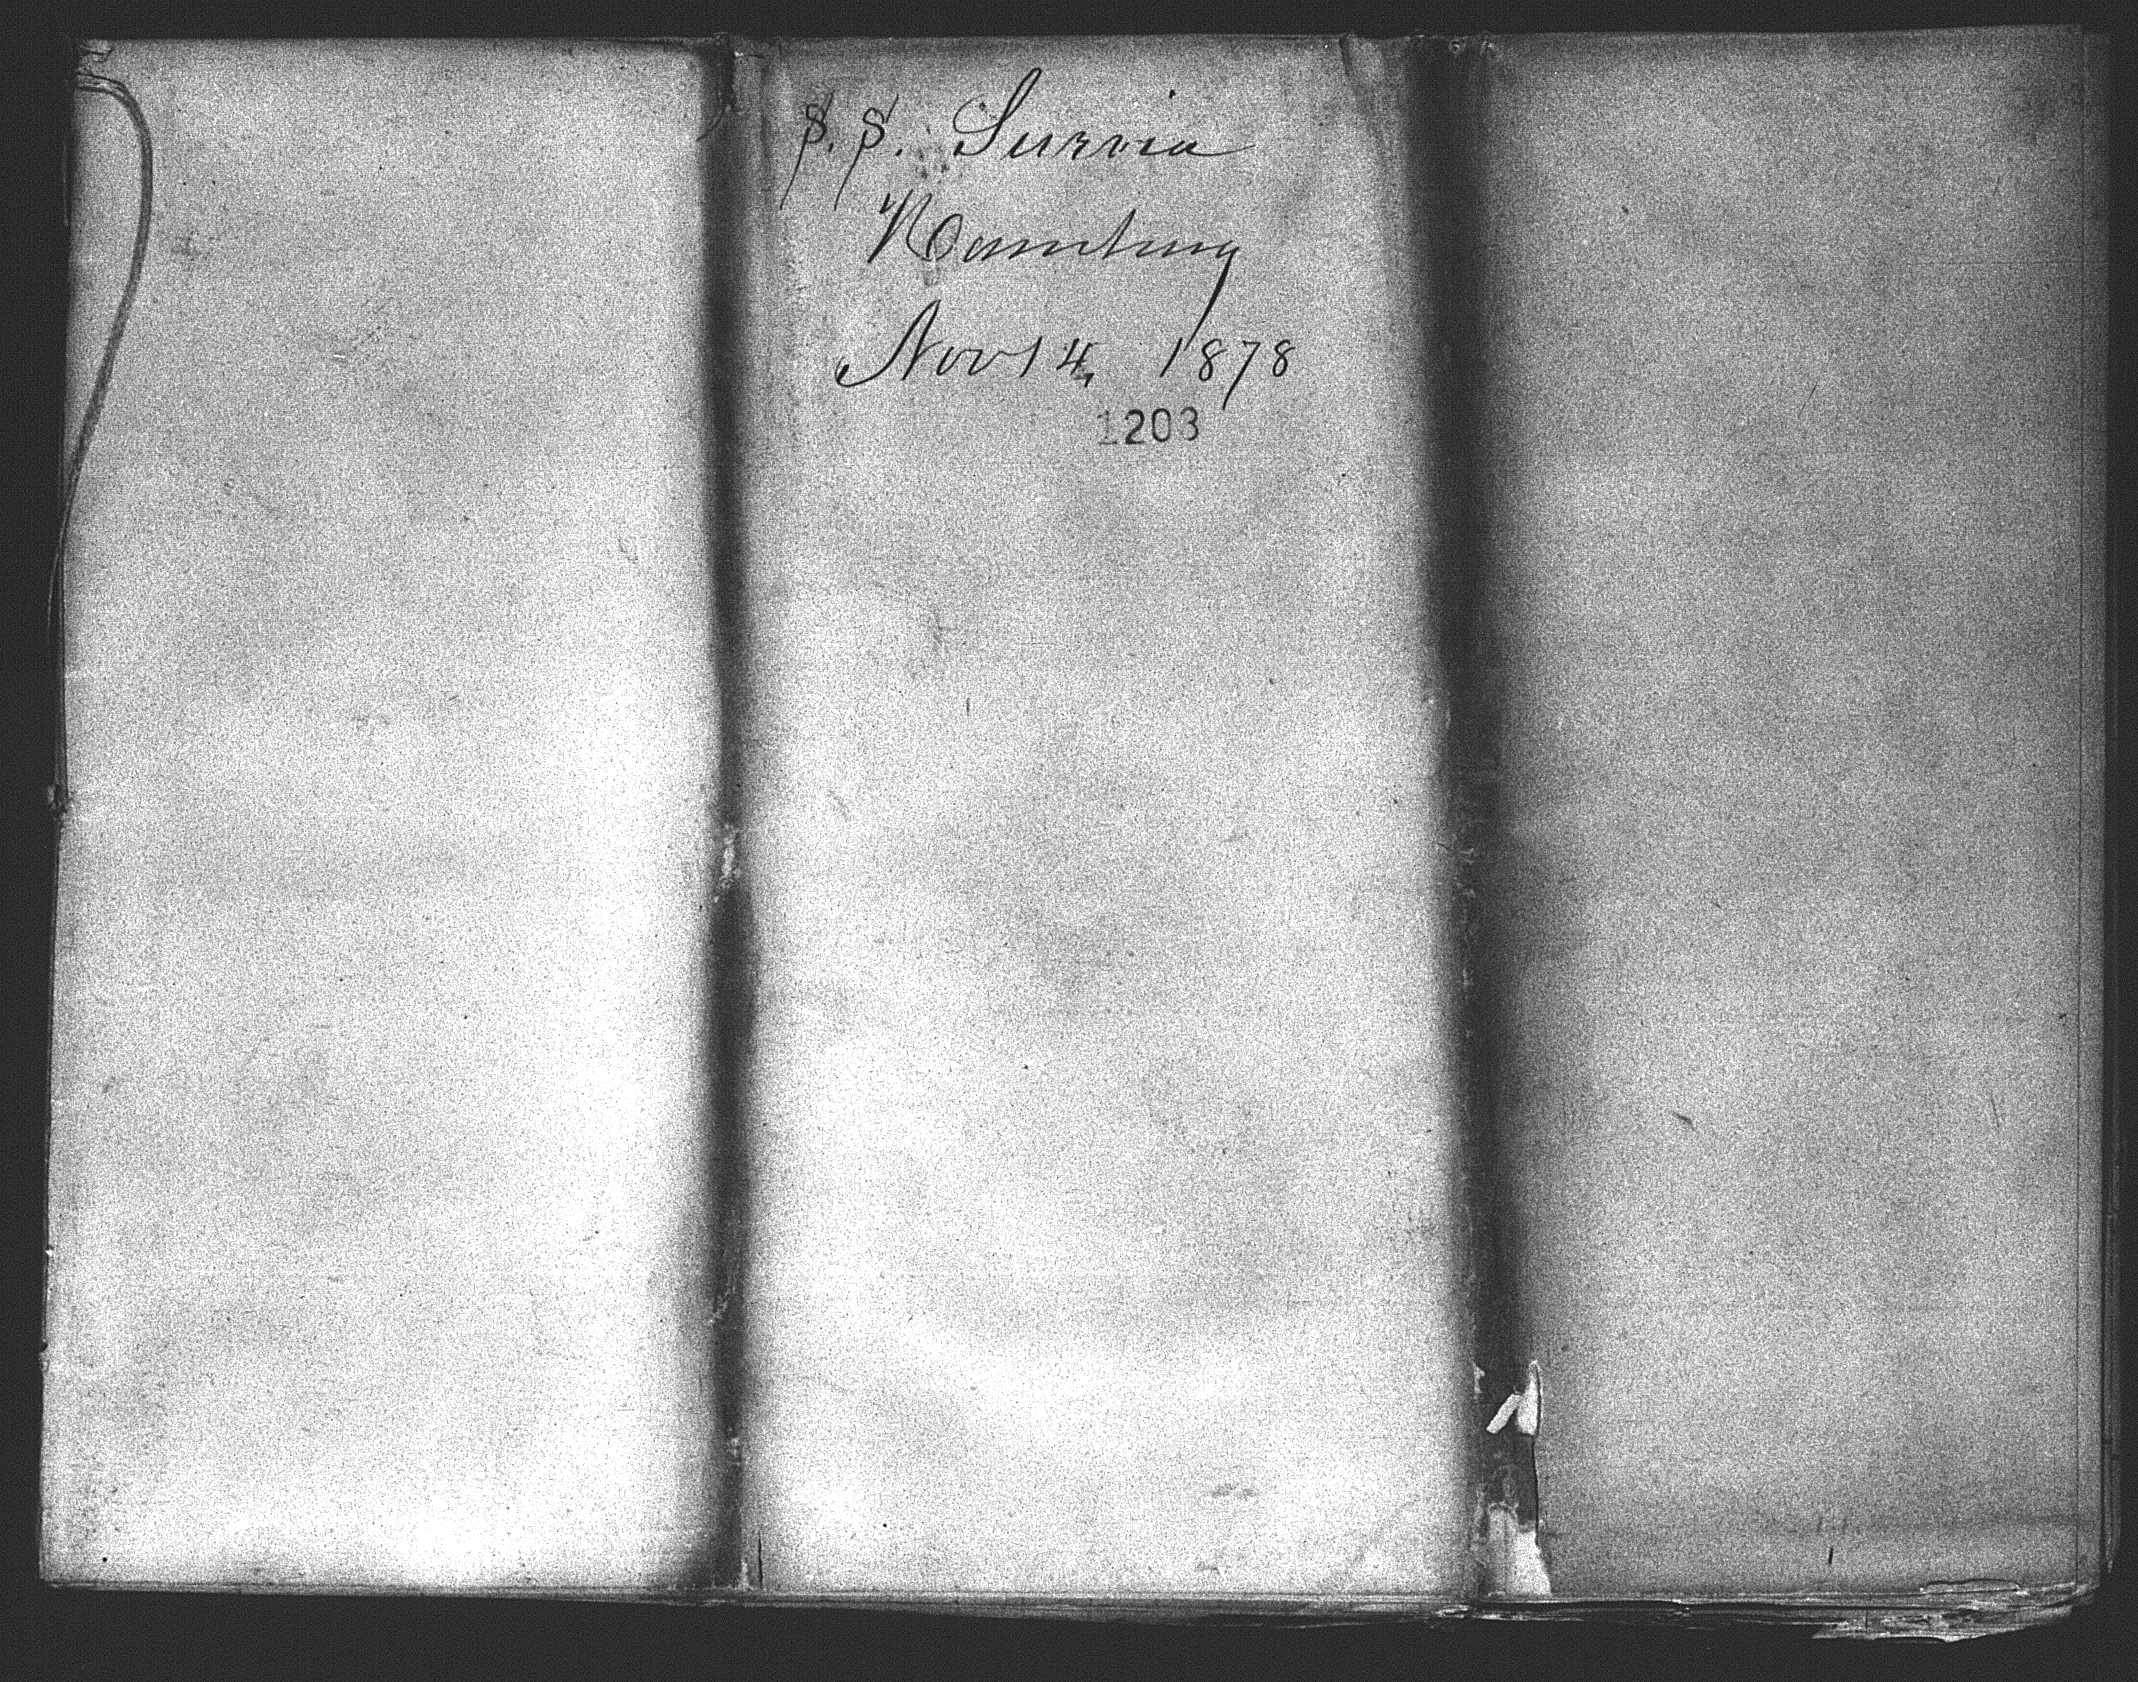 S.S. Suevia
Hamburg
Nov 14, 1878
1203